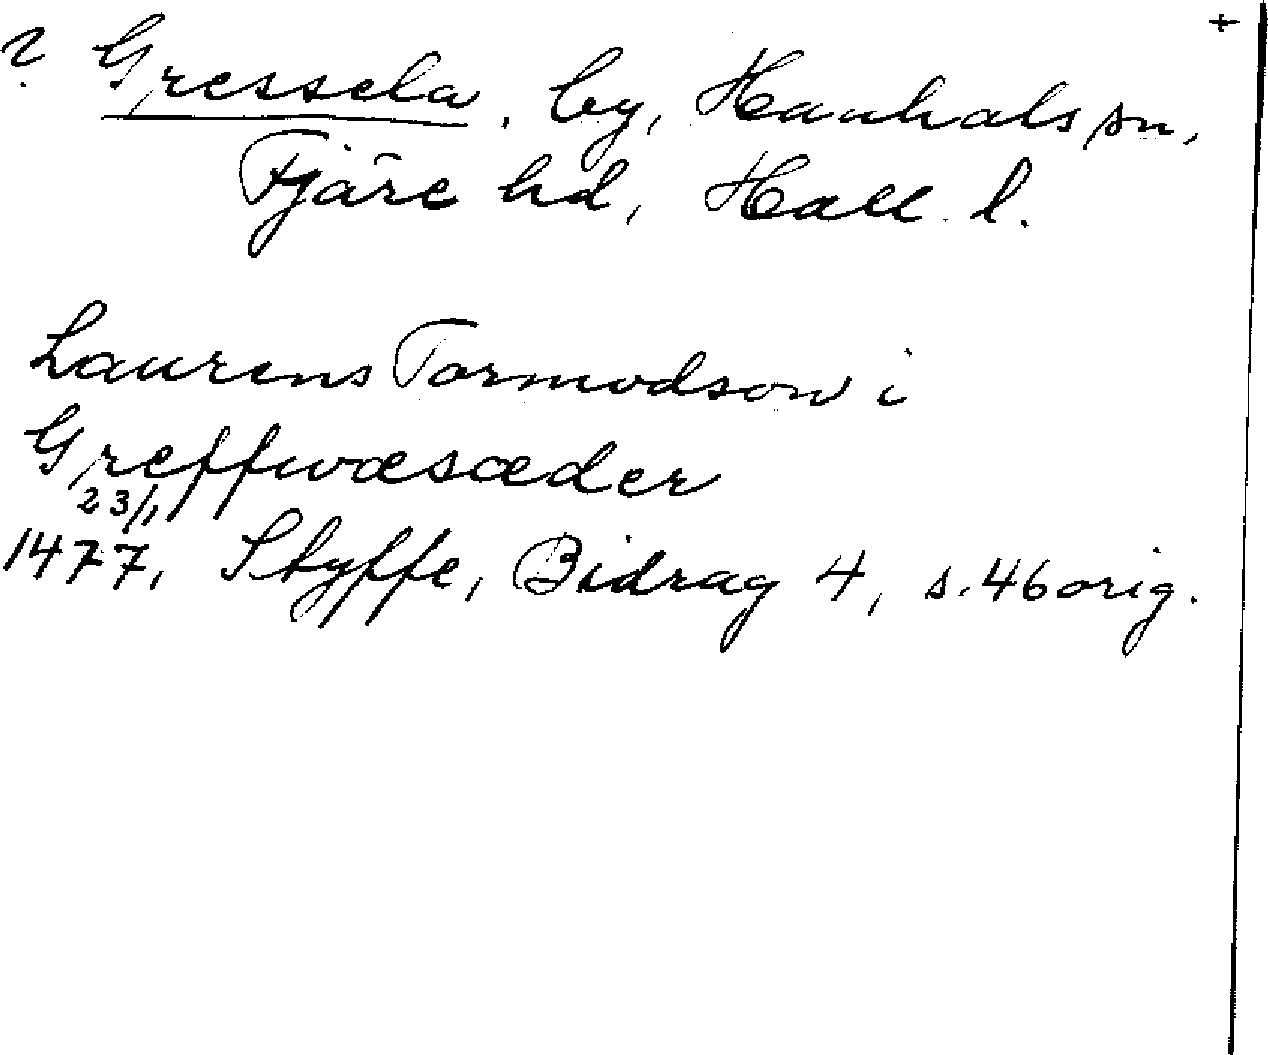 +
? Gressela, by, Hanhals sn,
Fjäre hd, Hall. l.
Laurens Tormodson i
Greffwæsæder
23/1
1477, Styffe, Bidrag 4, s. 46 orig.